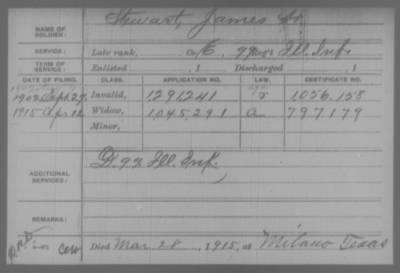 NAME OF SOLDIER: Stewart, James
SERVICE: Late rank, Co. E, 97 Reg't Ill. Inf.
TERM OF SERVICE: Enlisted , 1 Discharged , 1
DATE OF FILING. CLASS. APPLICATION NO. LAW. CERTIFICATE NO.
1902 Sept 27 Invalid, 1291241 1056.158
1915 Apr 12 Widow, 1,045,291 797179
Minor,
ADDITIONAL SERVICES: D. 97 Ill. Inf.
REMARKS:
Died Mar 28, 1915, at Milano Texas